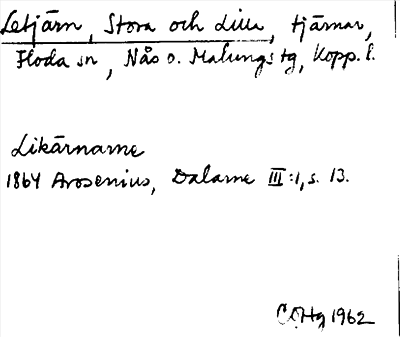 Letjärn, Stora och Lilla, tjärnar,
Floda sn, Nås o. Malungs tg, Kopp. l.
Likärnarne
1864 Arosenius, Dalarne III:1, s. 13.
1962